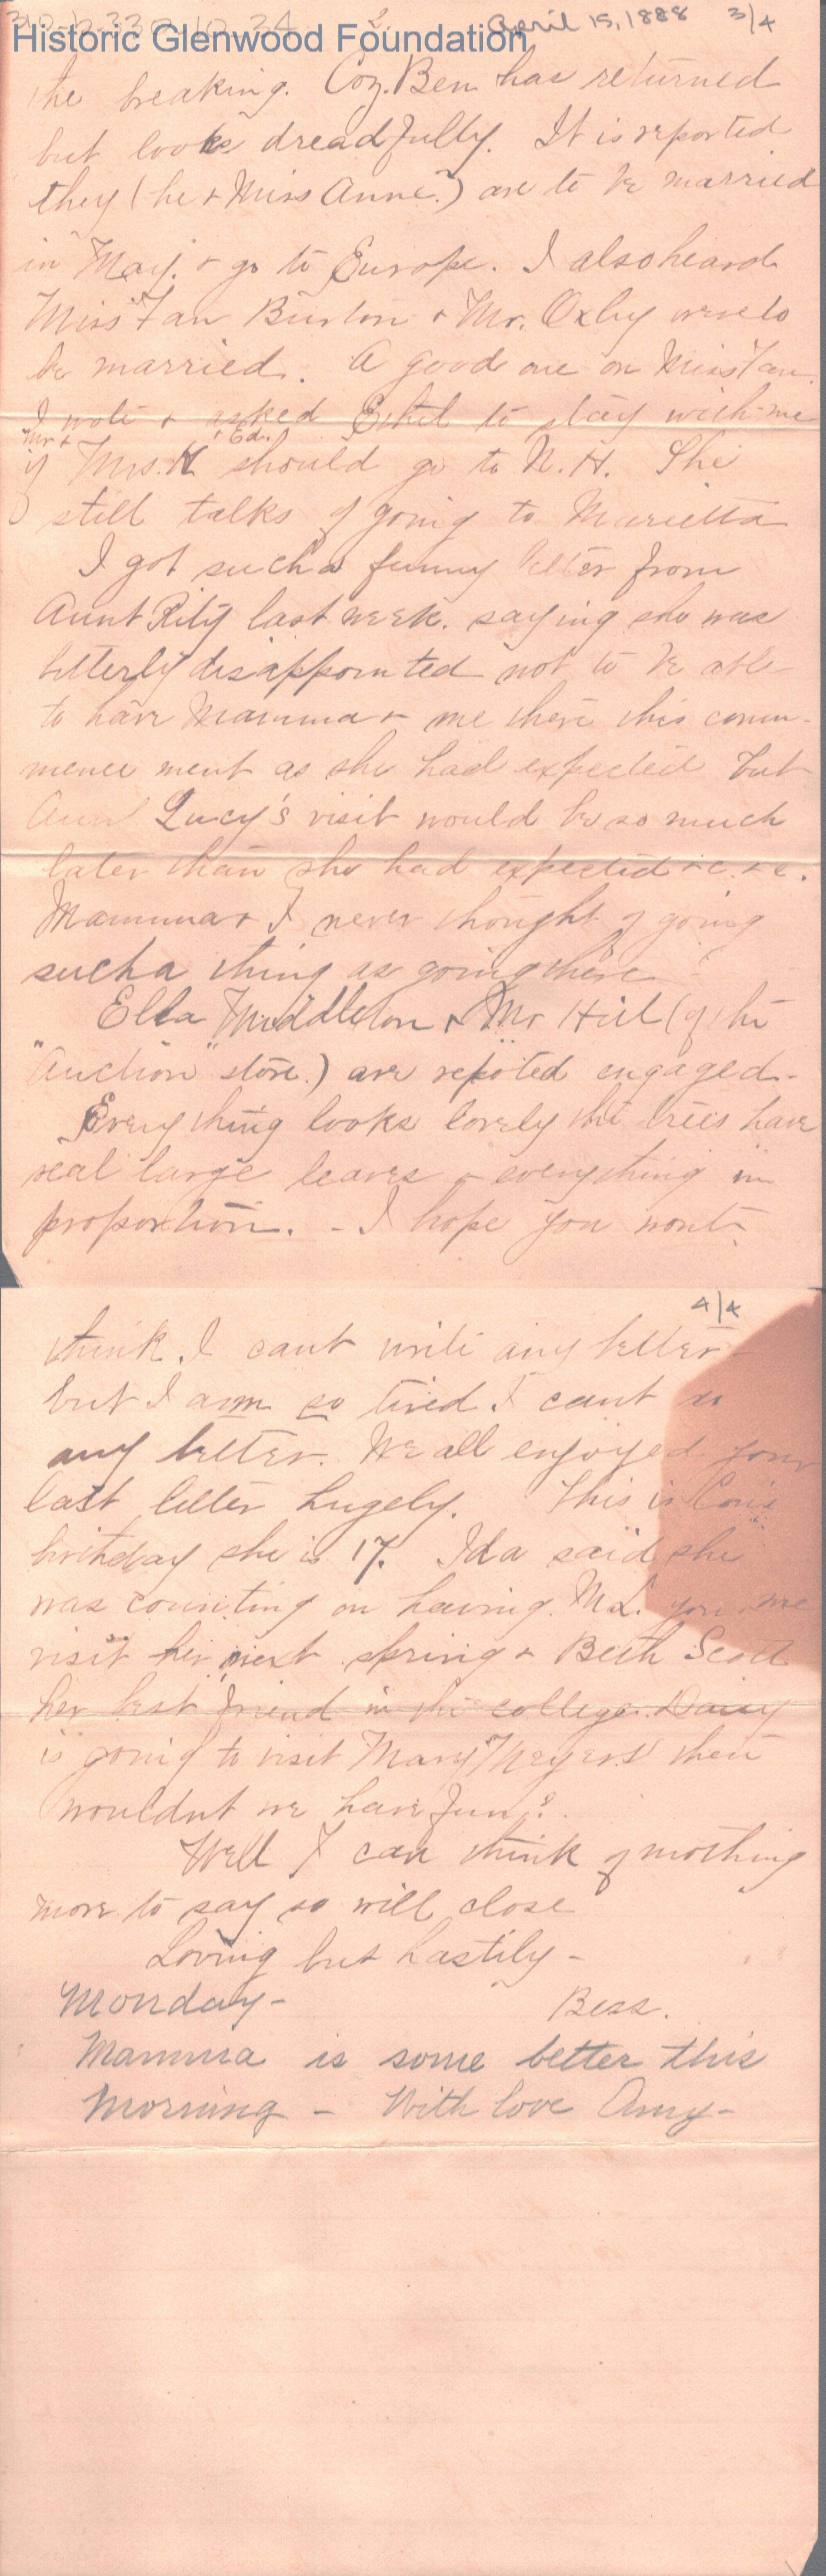 310-b-330-10-34 2 April 15, 1888 3/4
Historic Glenwood Foundation
the breaking. Coz. Ben has returned
but looks dreadfully. It is reported
they (he & Miss Anne?) are to be married
in May. & go to Europe. I also heard
Miss Fan Burton & Mr. Oxley were to
be married. A good one on Miss Fan.
I wrote & asked Ethel to stay with me
Mr & & Ed.
if Mrs. K should go to N. H. She
still talks of going to Marietta
I got such a funny letter from
Aunt Rity last week. saying she was
bitterly disappointed not to be able
to have Mamma & me there this com-
mence ment as she had expected but
Aunt Lucy's visit would be so much
later than she had expected &c. &c.
Mamma & I never thought of going
such a thing as going there
Ella Middleton & Mr Hill (of the
"Auction" store.) are repoted engaged-
Every thing looks lovely the trees have
real large leaves & everything in
proportion. - I hope you wont
4/4
think. I cant write any better -
but I am so tired I cant do
any better. We all enjoyed your
last letter hugely. This is
birthday she is 17. Ida said she
was counting on having. M.L. you me
visit her next spring & Beth Scott
her best friend in the college. Daisy
is going to visit Mary Meyers then
wouldnt we have fun?
Well I can think of nothing
more to say so will close
Loving but hastily -
Monday- Bess.
Mamma is some better this
morning - With love Amy-